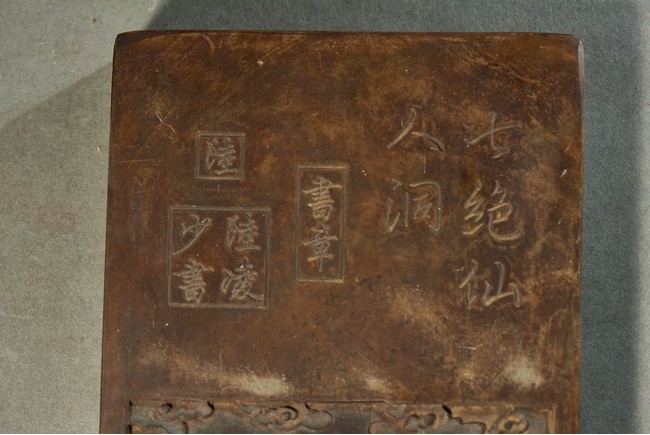 七絕仙
人洞
書章
陸
陸凌
少書